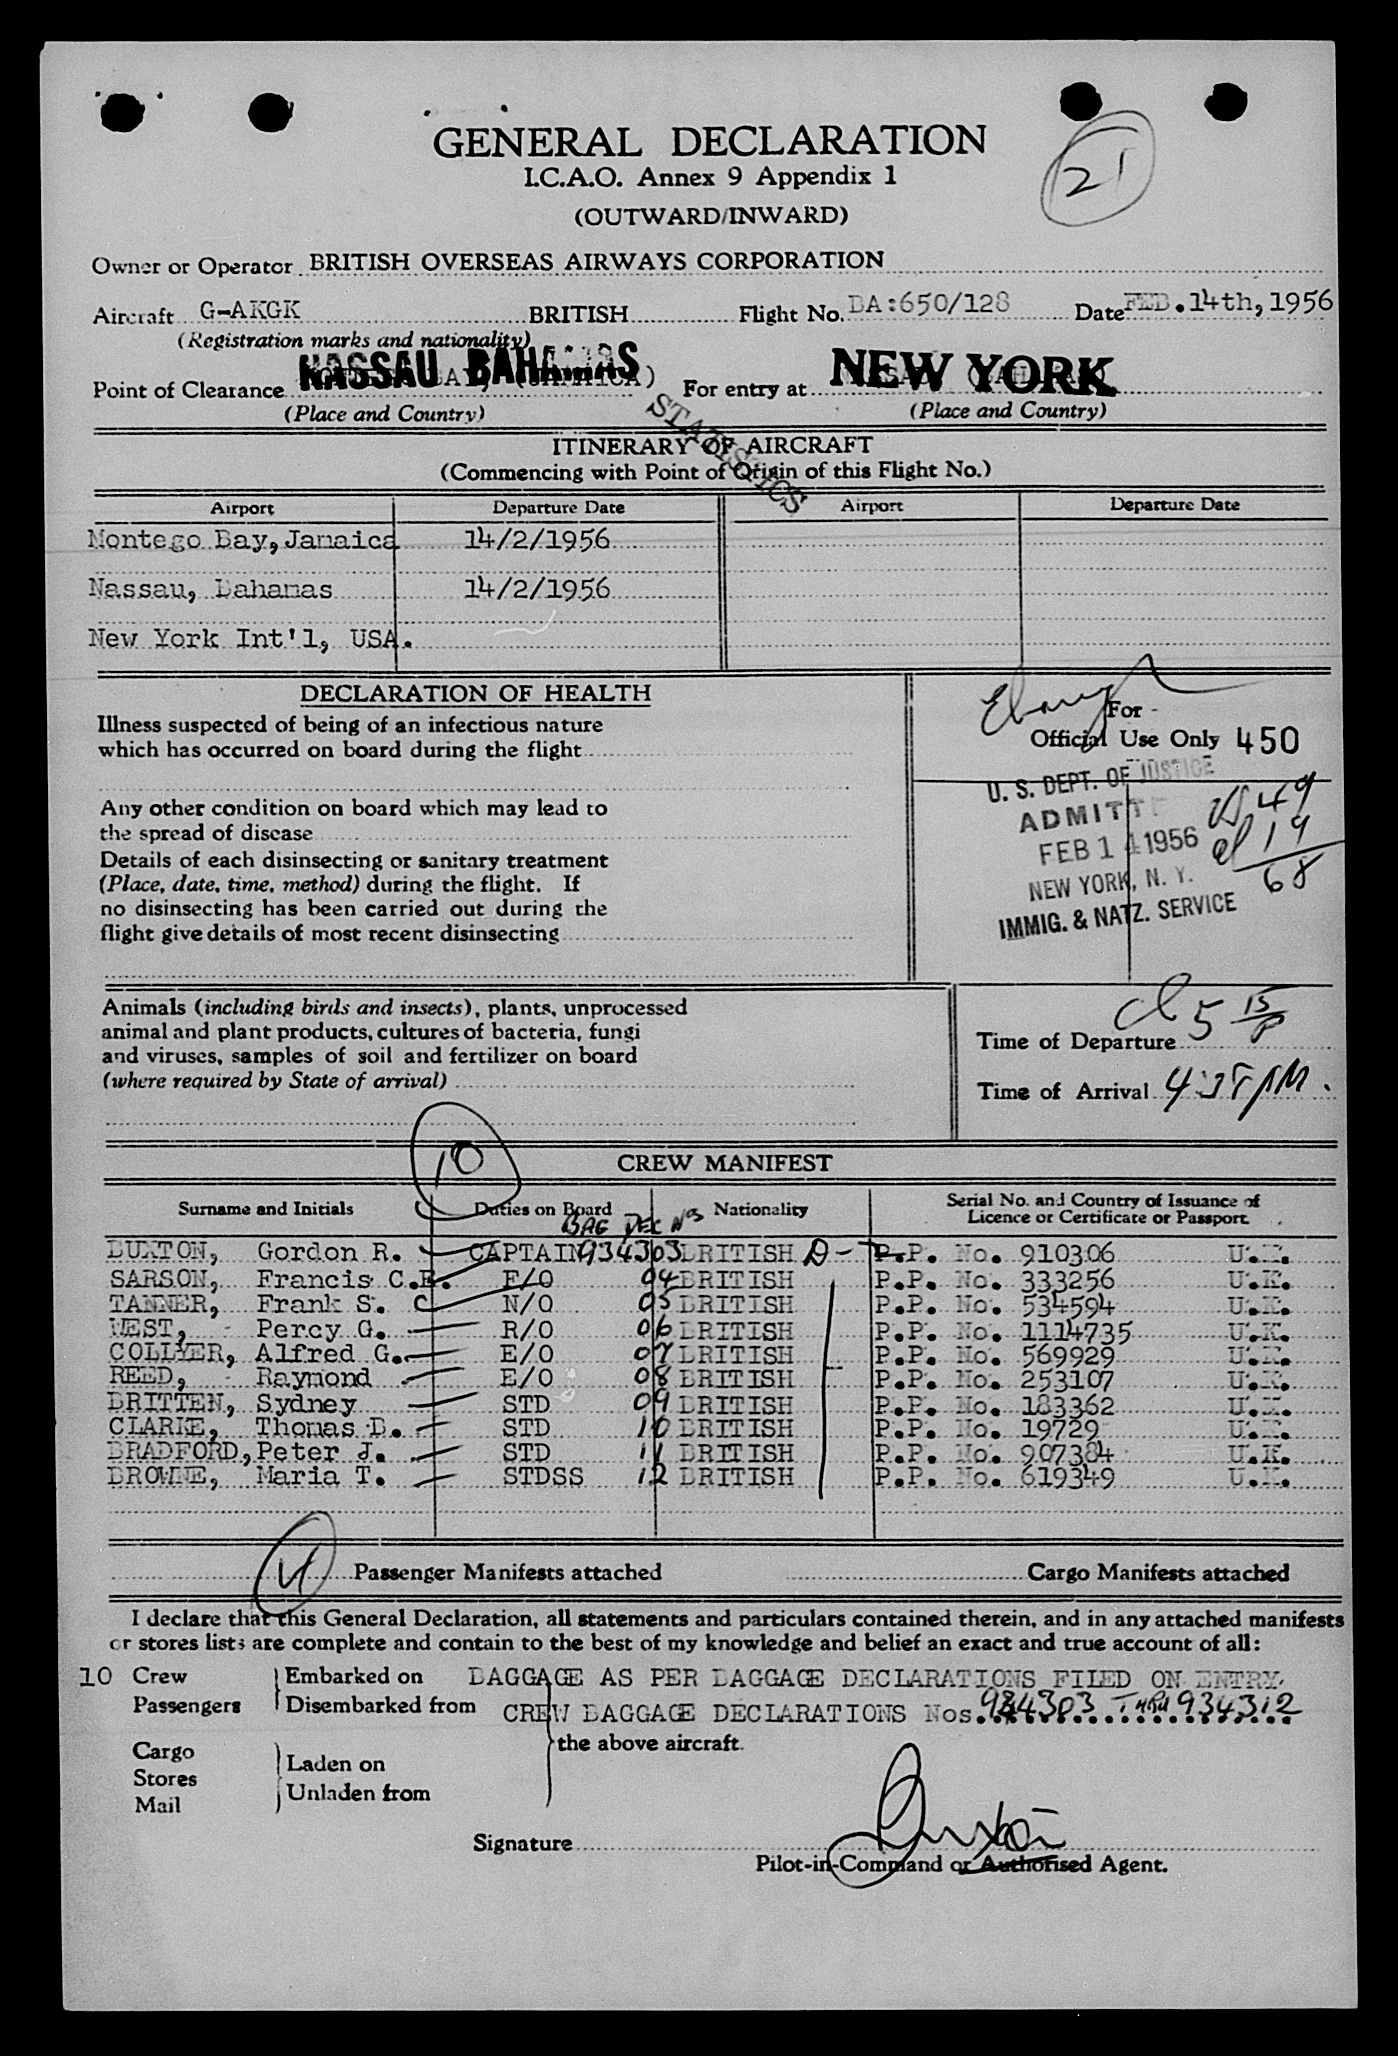 GENERAL DECLARATION
I.C.A.O. Annex 9 Appendix 1
(OUTWARD/INWARD)
21
Owner or Operator BRITISH OVERSEAS AIRWAYS CORPORATION
Aircraft G-AKGK BRITISH Flight No. BA:650/128 Date FEB.14th,1956
(Registration marks and nationality)
Point of Clearance NASSAU BAHAMAS For entry at NEW YORK
(Place and Country) (Place and Country)
STATISTICS
ITINERARY OF AIRCRAFT
(Commencing with Point of Origin of this Flight No.)
Airport Departure Date Airport Departure Date
Montego Bay,Jamaica 14/2/1956
Nassau, Bahamas 14/2/1956
New York Int'l, USA.
DECLARATION OF HEALTH
Illness suspected of being of an infectious nature
which has occurred on board during the flight
Any other condition on board which may lead to
the spread of disease
Details of each disinsecting or sanitary treatment
(Place, date, time, method) during the flight. If
no disinsecting has been carried out during the
flight give details of most recent disinsecting
For
Official Use Only 450
U. S. DEPT. OF JUSTICE
ADMITTED
FEB 14 1956
NEW YORK, N. Y.
IMMIG. & NATZ. SERVICE
49
19
68
Animals (including birds and insects), plants, unprocessed
animal and plant products, cultures of bacteria, fungi
and viruses, samples of soil and fertilizer on board
(where required by State of arrival)
Time of Departure 5 15/P
Time of Arrival PM.
10
CREW MANIFEST
Surname and Initials Duties on Board Nationality Serial No. and Country of Issuance of
Licence or Certificate or Passport.
BAG DEC Nos
BUXTON, Gordon R. CAPTAIN 934303 BRITISH D - P.P. No. 910306 U.K.
SARSON, Francis C.E. F/O 04 BRITISH P.P. No. 333256 U.K.
TANNER, Frank S. N/O 05 BRITISH P.P. No. 534594 U.K.
WEST, Percy G. R/O 06 BRITISH P.P. No. 1114735 U.K.
COLLYER, Alfred G. E/O 07 BRITISH P.P. No. 569929 U.K.
REED, Raymond E/O 08 BRITISH P.P. No. 253107 U.K.
BRITTEN, Sydney STD 09 BRITISH P.P. No. 183362 U.K.
CLARKE, Thomas D. STD 10 BRITISH P.P. No. 19729 U.K.
BRADFORD, Peter J. STD 11 BRITISH P.P. No. 907384 U.K.
BROWNE, Maria T. STDSS 12 BRITISH P.P. No. 619349 U.K.
4 Passenger Manifests attached Cargo Manifests attached
I declare that this General Declaration, all statements and particulars contained therein, and in any attached manifests
or stores lists are complete and contain to the best of my knowledge and belief an exact and true account of all:
10 Crew Embarked on BAGGAGE AS PER BAGGAGE DECLARATIONS FILED ON ENTRY.
Passengers Disembarked from CREW BAGGAGE DECLARATIONS Nos. 934303 THRU 934312
the above aircraft.
Cargo
Stores Laden on
Mail Unladen from
Signature Buxton
Pilot-in-Command or Authorised Agent.